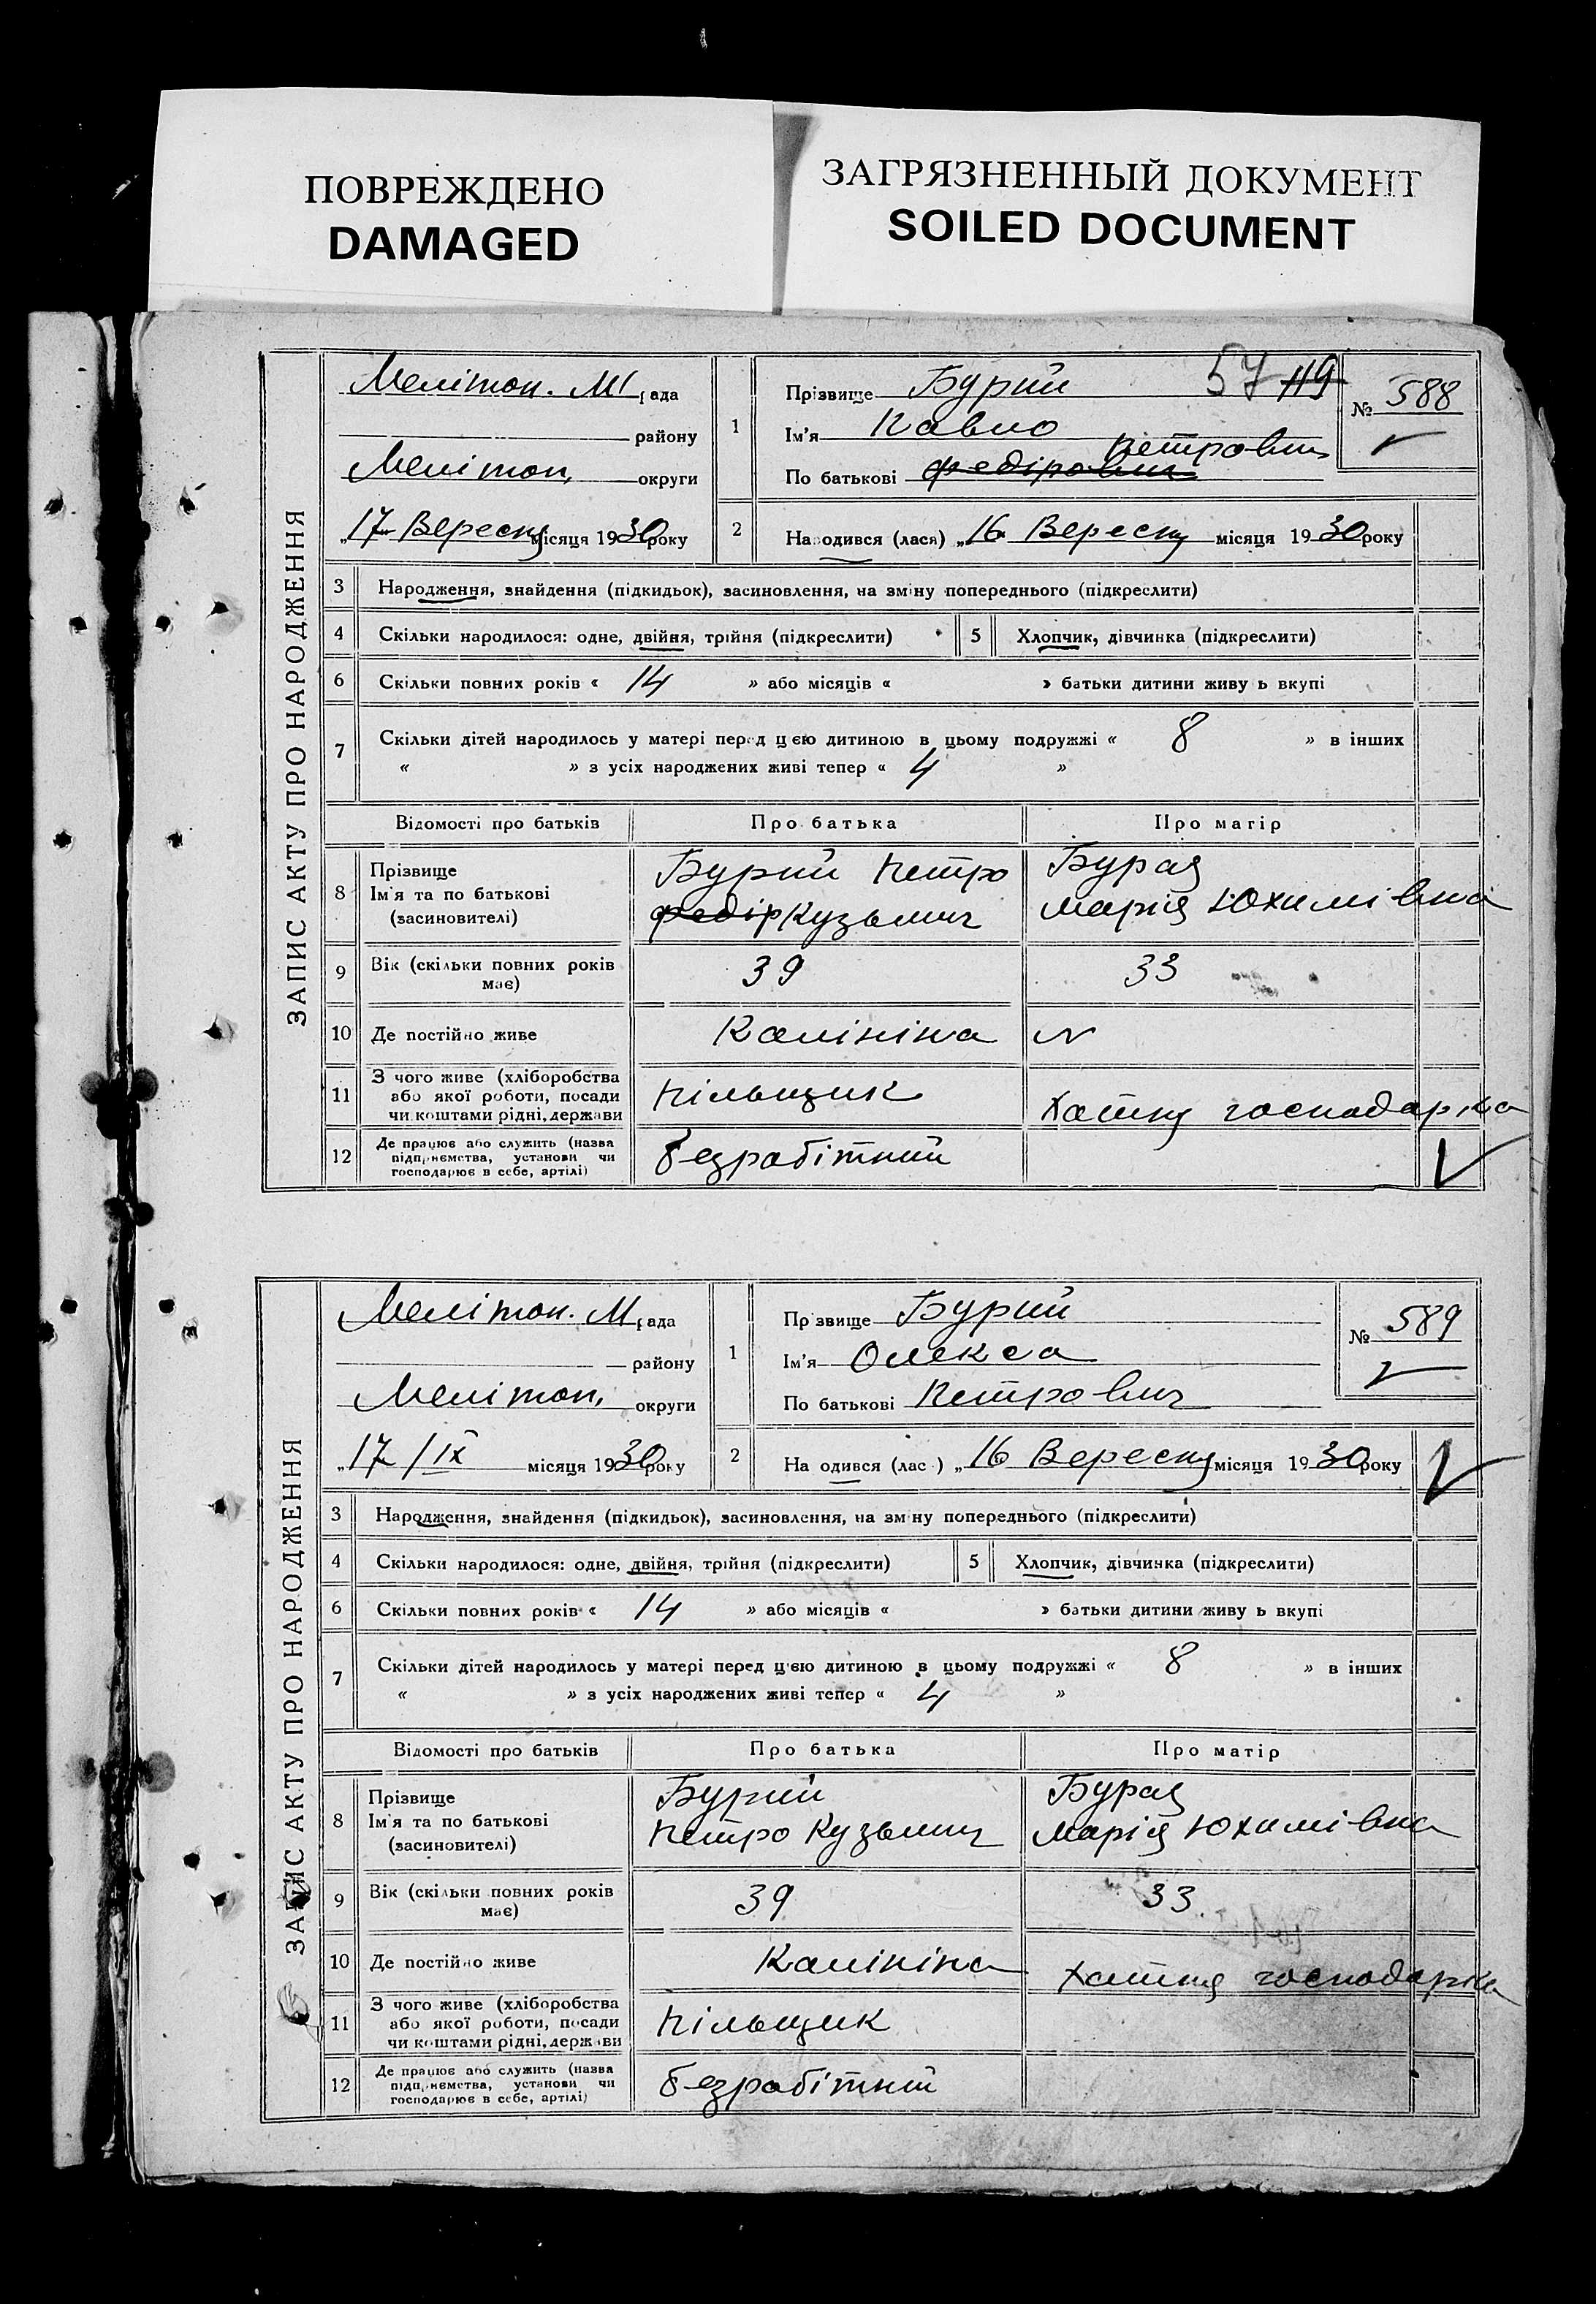 ПОВРЕЖДЕНО
DAMAGED
ЗАГРЯЗНЕННЫЙ ДОКУМЕНТ
SOILED DOCUMENT
ЗАПИС АКТУ ПРО НАРОДЖЕННЯ
Меліտոп. М рада
району
Меліտоп. округи
„17 Вересня місяця 1930 року
1 Прізвище Бурий 57 119
Ім'я Павло
По батькові Федірович Петрович
№ 588
2 Народився (лася) „16 Вересня місяця 1930 року
3 Народження, знайдення (підкидьок), засиновлення, на зміну попереднього (підкреслити)
4 Скільки народилося: одне, двійня, трійня (підкреслити) 5 Хлопчик, дівчинка (підкреслити)
6 Скільки повних років « 14 » або місяців « » батьки дитини живуть вкупі
7 Скільки дітей народилось у матері перед цією дитиною в цьому подружжі « 8 » в інших
« » з усіх народжених живі тепер « 4 »
Відомості про батьків Про батька Про матір
8 Прізвище
Ім'я та по батькові
(засиновителі)
Бурий Петро
Федір Кузьмич
Бурая
Марія Юхимівна
9 Вік (скільки повних років має) 39 33
10 Де постійно живе Калініна
11 З чого живе (хліборобства
або якої роботи, посади
чи коштами рідні, держави
Пільщик
Хатня господарка
12 Де працює або служить (назва
підприємства, установи чи
господарює в себе, артілі)
безработній
ЗАПИС АКТУ ПРО НАРОДЖЕННЯ
Мелітоп. М рада
району
Мелітоп. округи
„17/IX місяця 1930 року
1 Прізвище Бурий
Ім'я Олекса
По батькові Петрович
№ 589
2 Народився (лась) „16 Вересня місяця 1930 року
3 Народження, знайдення (підкидьок), засиновлення, на зміну попереднього (підкреслити)
4 Скільки народилося: одне, двійня, трійня (підкреслити) 5 Хлопчик, дівчинка (підкреслити)
6 Скільки повних років « 14 » або місяців « » батьки дитини живуть вкупі
7 Скільки дітей народилось у матері перед цією дитиною в цьому подружжі « 8 » в інших
« » з усіх народжених живі тепер « 4 »
Відомості про батьків Про батька Про матір
8 Прізвище
Ім'я та по батькові
(засиновителі)
Бурий
Петро Кузьмич
Бурая
Марія Юхимівна
9 Вік (скільки повних років має) 39 33
10 Де постійно живе Калініна
Хатня господарка
11 З чого живе (хліборобства
або якої роботи, посади
чи коштами рідні, держави
Пільщик
12 Де працює або служить (назва
підприємства, установи чи
господарює в себе, артілі)
безробітний